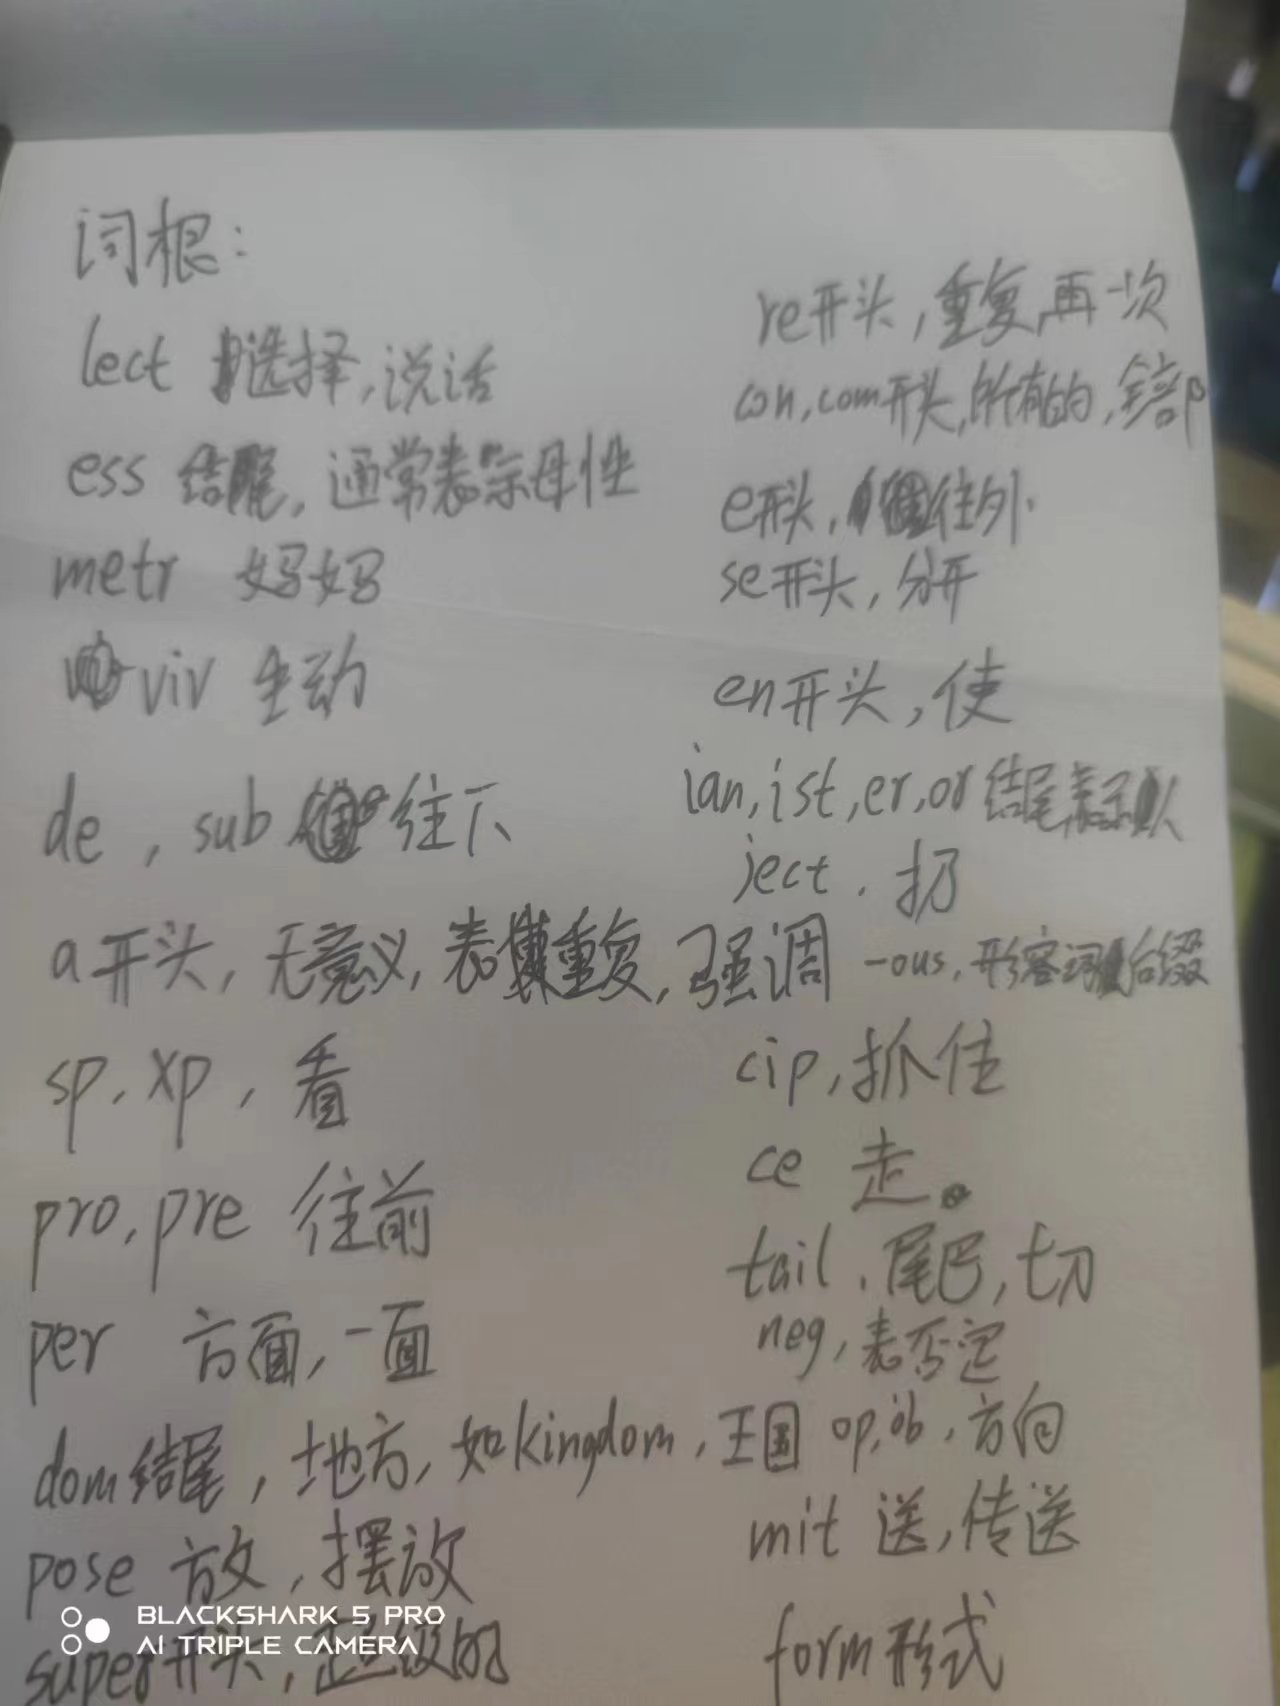 词根：
lect 选择,说话
ess 结尾, 通常表示母性
metr 妈妈
viv 生动
de , sub 往下
a开头, 无意义, 表重复, 强调
sp, xp , 看
pro, pre 往前
per 方面, 一面
dom结尾, 地方, 如kingdom, 王国
pose 放, 摆放
super开头, 超级的
re开头, 重复,再一次
con, com开头,所有的, 全部
e开头, 往外
se开头, 分开
en开头, 使
ian, ist, er, or 结尾,表示人
ject. 扔
-ous, 形容词后缀
cip, 抓住
ce 走。
tail. 尾巴, 切
neg, 表否定
op, ob, 方向
mit 送, 传送
form 形式
BLACKSHARK 5 PRO
AI TRIPLE CAMERA